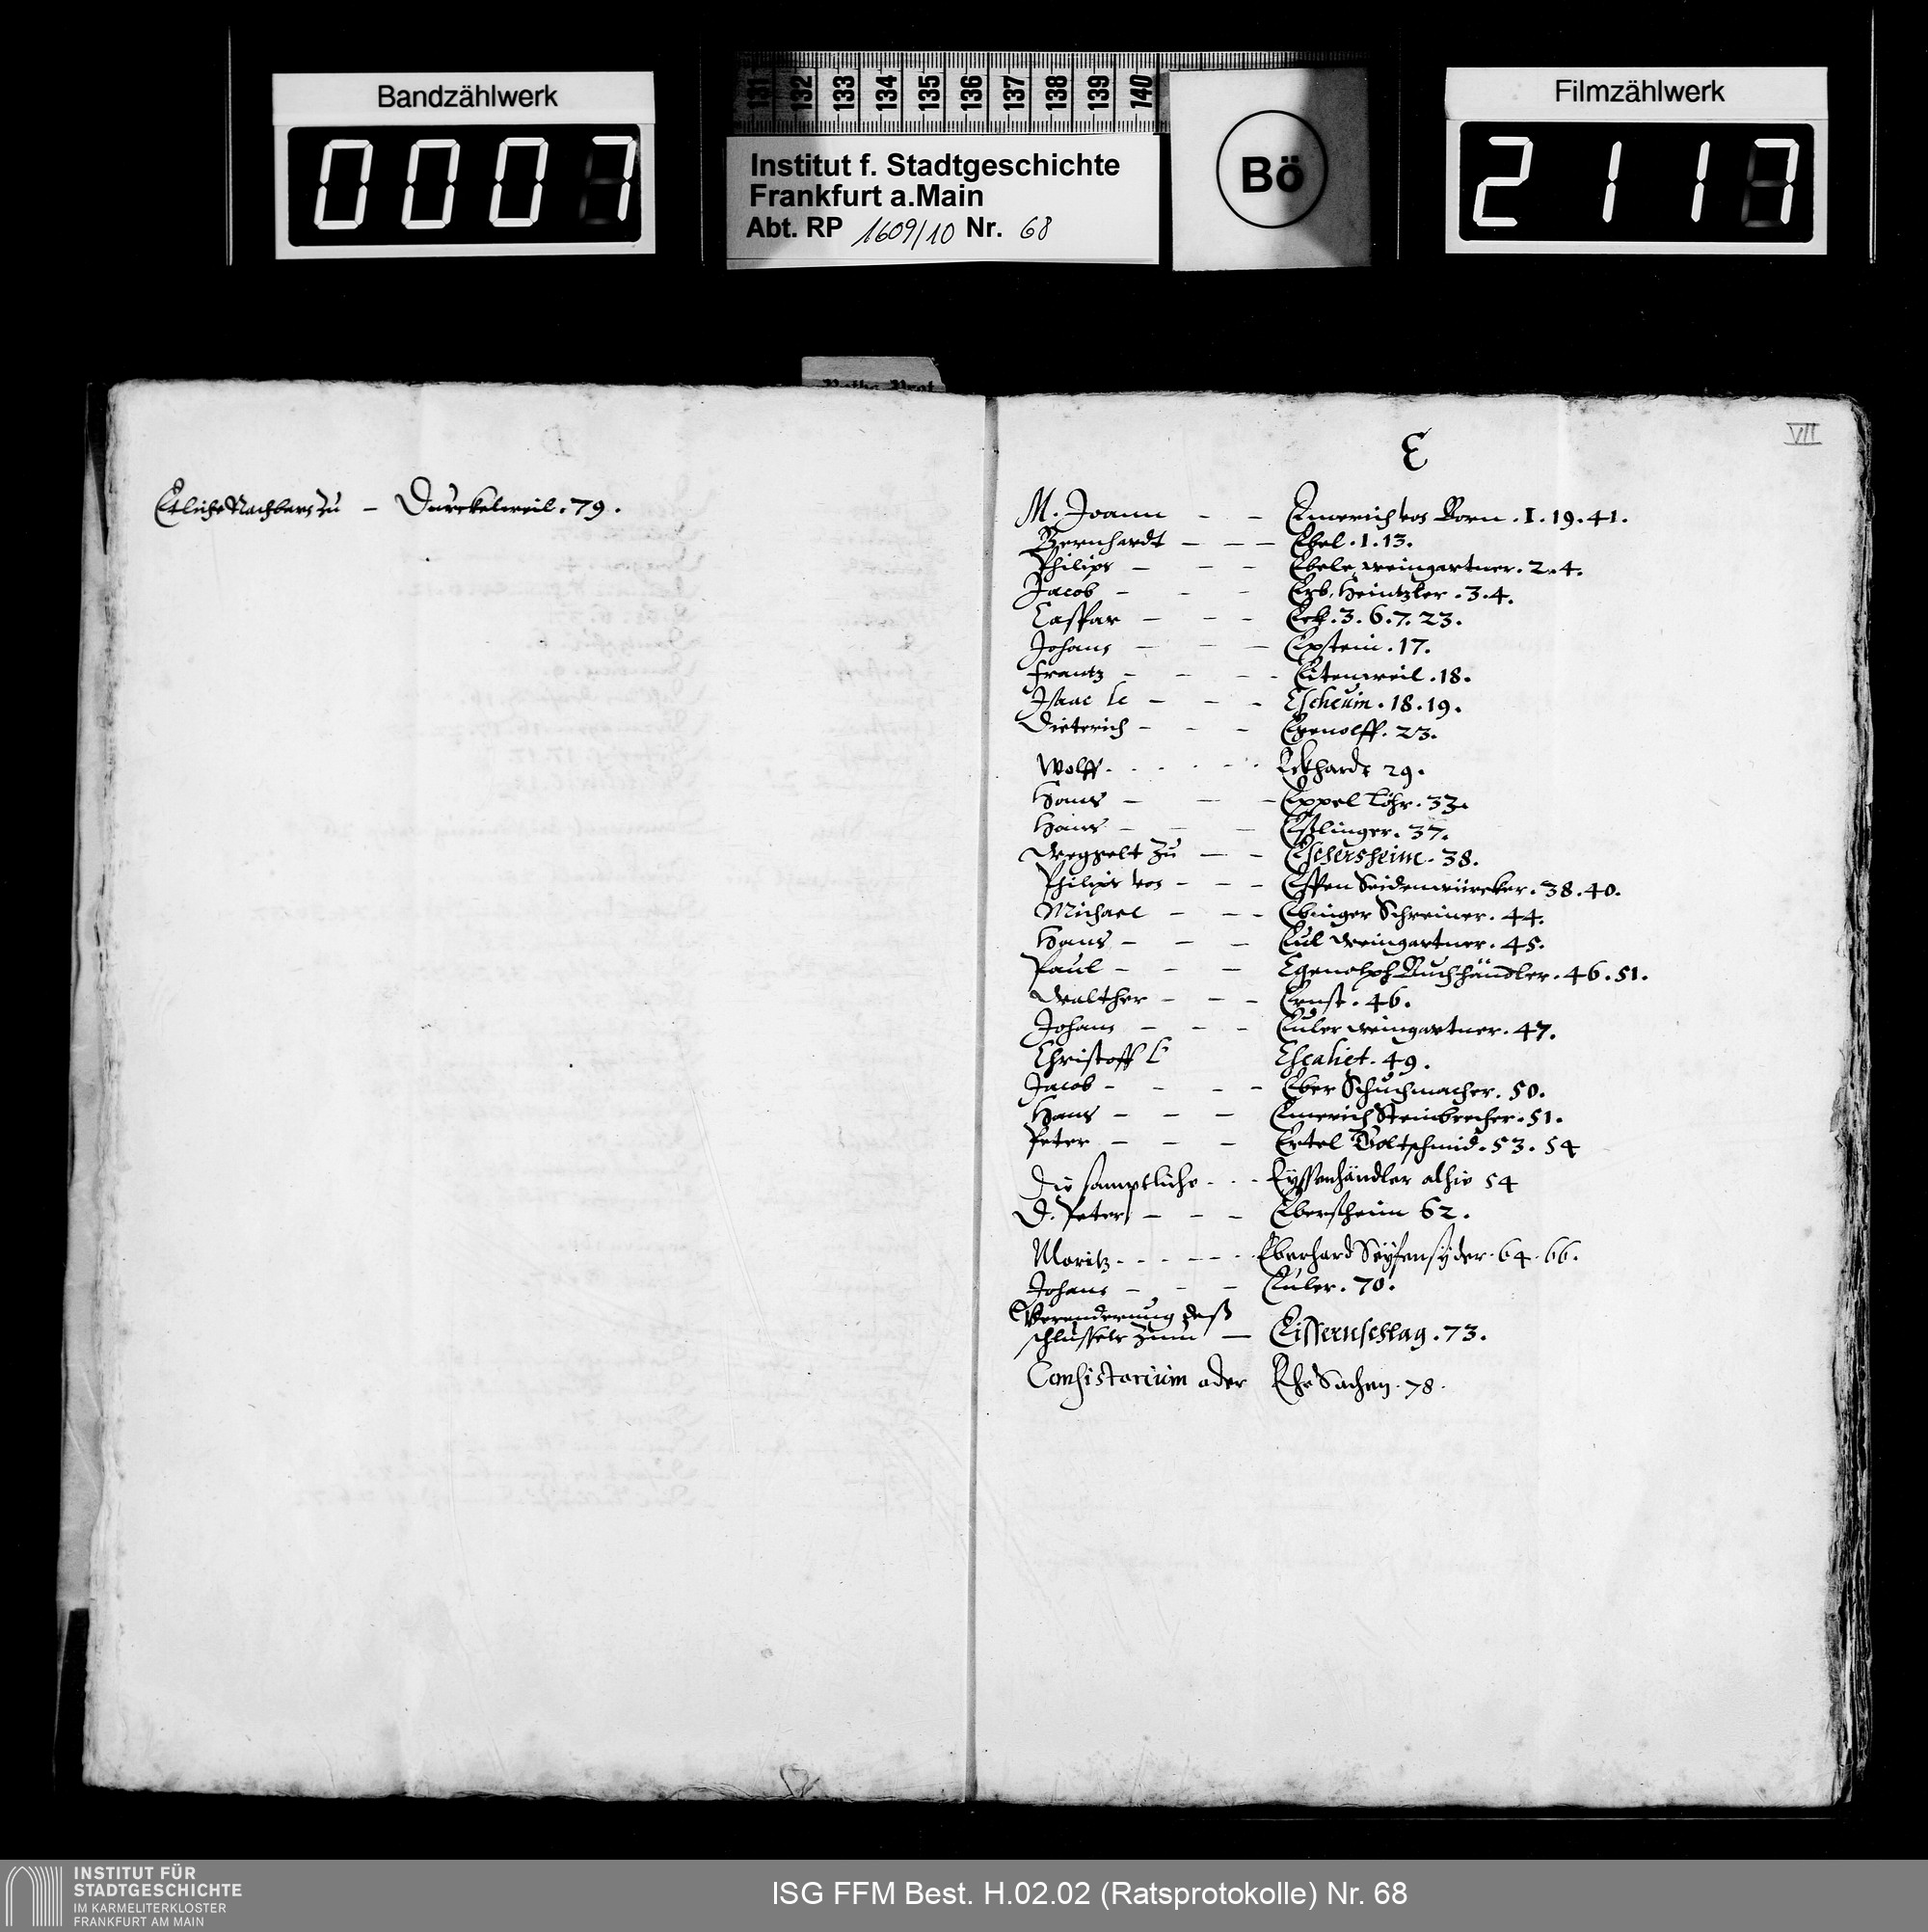 Bandzählwerk
0007
131 132 133 134 135 136 137 138 139 140
Institut f. Stadtgeschichte
Frankfurt a.Main
Abt. RP 1609/10 Nr. 68
Bö
Filmzählwerk
2117
Etliche Nachbarn zu – Durckelweil. 79.
VII
E
M. Joann – – Emerich von Born. 1. 19. 41.
Bernhardt – – – Ebel. 1. 13.
Philips – – – Ebele, weingartner. 2. 4.
Jacob – – – Erb, Heintzler. 3. 4.
Caspar – – – Eck. 3. 6. 7. 23.
Johans – – – Epstein. 17.
Frantz – – – – Eitenweil. 18.
Isaac le – – – Escheuin. 18. 19.
Dieterich – – – Egenolff. 23.
Wolff . . . . . . Eckhardt 29.
Hans – – – Eppel Löhr. 33.
Hans – – – Eslinger. 37.
zu – – Eschersheim. 38.
Philips von – – – Essen Seidenwürcker. 38. 40.
Michael – – – Ebinger Schreiner. 44.
Hans – – – Eul weingartner. 45.
Paul – – – Egenolph Buchhändler. 46. 51.
Walther – – – Ernst. 46.
Johans – – – Euler weingartner. 47.
Christoff l' Escaliet. 49.
Jacob – – – – Eber Schuchmacher. 50.
Hans – – – Emerich Steinbrecher. 51.
Peter – – – Ertel Goltschmid. 53. 54
Die samptliche . . . Eyssenhändler alhie 54
D. Peter – – – Ebersheim 62.
Moritz . - . - - - . . Eberhard Seyfensyder. 64. 66.
Johans – – – Euler. 70.
Veranderung deß
schlussels zum – Eissernschlag. 73.
Consistorium oder Ehe Sachen. 78.
INSTITUT FÜR
STADTGESCHICHTE
IM KARMELITERKLOSTER
FRANKFURT AM MAIN
ISG FFM Best. H.02.02 (Ratsprotokolle) Nr. 68